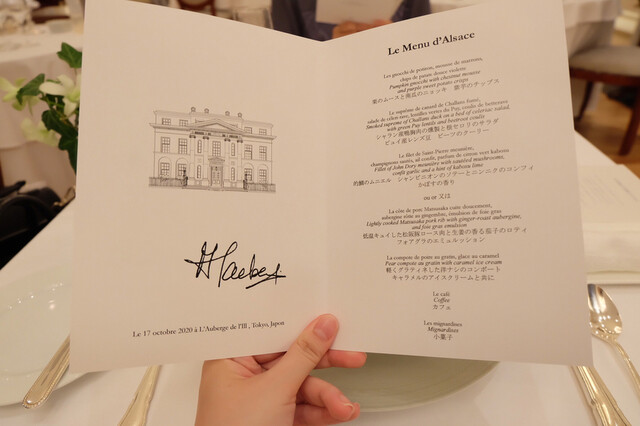 Le 17 octobre 2020 à L'Auberge de l'Ill , Tokyo, Japon
Le Menu d'Alsace
Les gnocchi de potiron, mousse de marrons,
chips de patate douce violette
Pumpkin gnocchi with chestnut mousse
and purple sweet potato crisps
栗のムースと南瓜のニョッキ 紫芋のチップス
Le suprême de canard de Challans fumé,
salade de céleri-rave, lentilles vertes du Puy, coulis de betterave
Smoked supreme of Challans duck on a bed of celeriac salad,
with green Puy lentils and beetroot coulis
シャラン産鴨胸肉の燻製と根セロリのサラダ
ピュイ産レンズ豆 ビーツのクーリー
Le filet de Saint Pierre meunière,
champignons sautés, ail confit, parfum de citron vert kabosu
Fillet of John Dory meunière with sautéed mushrooms,
confit garlic and a hint of kabosu lime
的鯛のムニエル シャンピニオンのソテーとニンニクのコンフィ
かぼすの香り
ou or 又は
La côte de porc Matsusaka cuite doucement,
aubergine rôtie au gingembre, émulsion de foie gras
Lightly cooked Matsusaka pork rib with ginger-roast aubergine,
and foie gras emulsion
低温キュイした松阪豚ロース肉と生姜の香る茄子のロティ
フォアグラのエミュルッション
La compote de poire au gratin, glace au caramel
Pear compote au gratin with caramel ice cream
軽くグラティネした洋ナシのコンポート
キャラメルのアイスクリームと共に
Le café
Coffee
カフェ
Les mignardises
Mignardises
小菓子